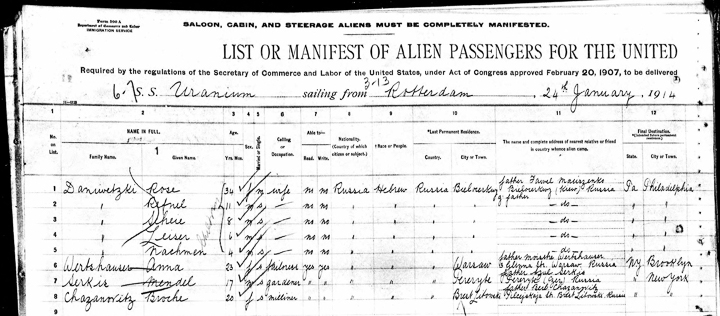 Form 500 A
Department of Commerce and Labor
IMMIGRATION SERVICE
SALOON, CABIN, AND STEERAGE ALIENS MUST BE COMPLETELY MANIFESTED.
LIST OR MANIFEST OF ALIEN PASSENGERS FOR THE UNITED
Required by the regulations of the Secretary of Commerce and Labor of the United States, under Act of Congress approved February 20, 1907, to be delivered
3-13
6-7 S. S. Uranium sailing from Rotterdam, 24th January, 1914
1 2 3 4 5 6 7 8 9 10 11 12
No. on List. NAME IN FULL. Age. Sex. Married or Single. Calling or Occupation. Able to— Nationality. (Country of which citizen or subject.) † Race or People. *Last Permanent Residence. The name and complete address of nearest relative or friend in country whence alien came. Final Destination.
Family Name. Given Name. Yrs. Mos. Read. Write. Country. City or Town. State. City or Town.
1 Daniwetzki Rose 34 f m wife no no Russia Hebrew Russia Pa Philadelphia
2 " 11 s — no no " " " " — do —
3 " 8 s — no no " " " " — do —
4 " Leiser 6 s — no no " " " " — do —
5 Nachmen 4 m s — no no " " " — do —
6 Anna 23 f s yes yes " " " Warsaw Warsaw Russia Ny Brooklyn
7 Serkis Mendel 17 m s gardener " " " " " Russia " New York
8 Chazanovitz Broche 20 f s milliner " " " " " Brest Litowsk Brest Litowsk Russia " "
9